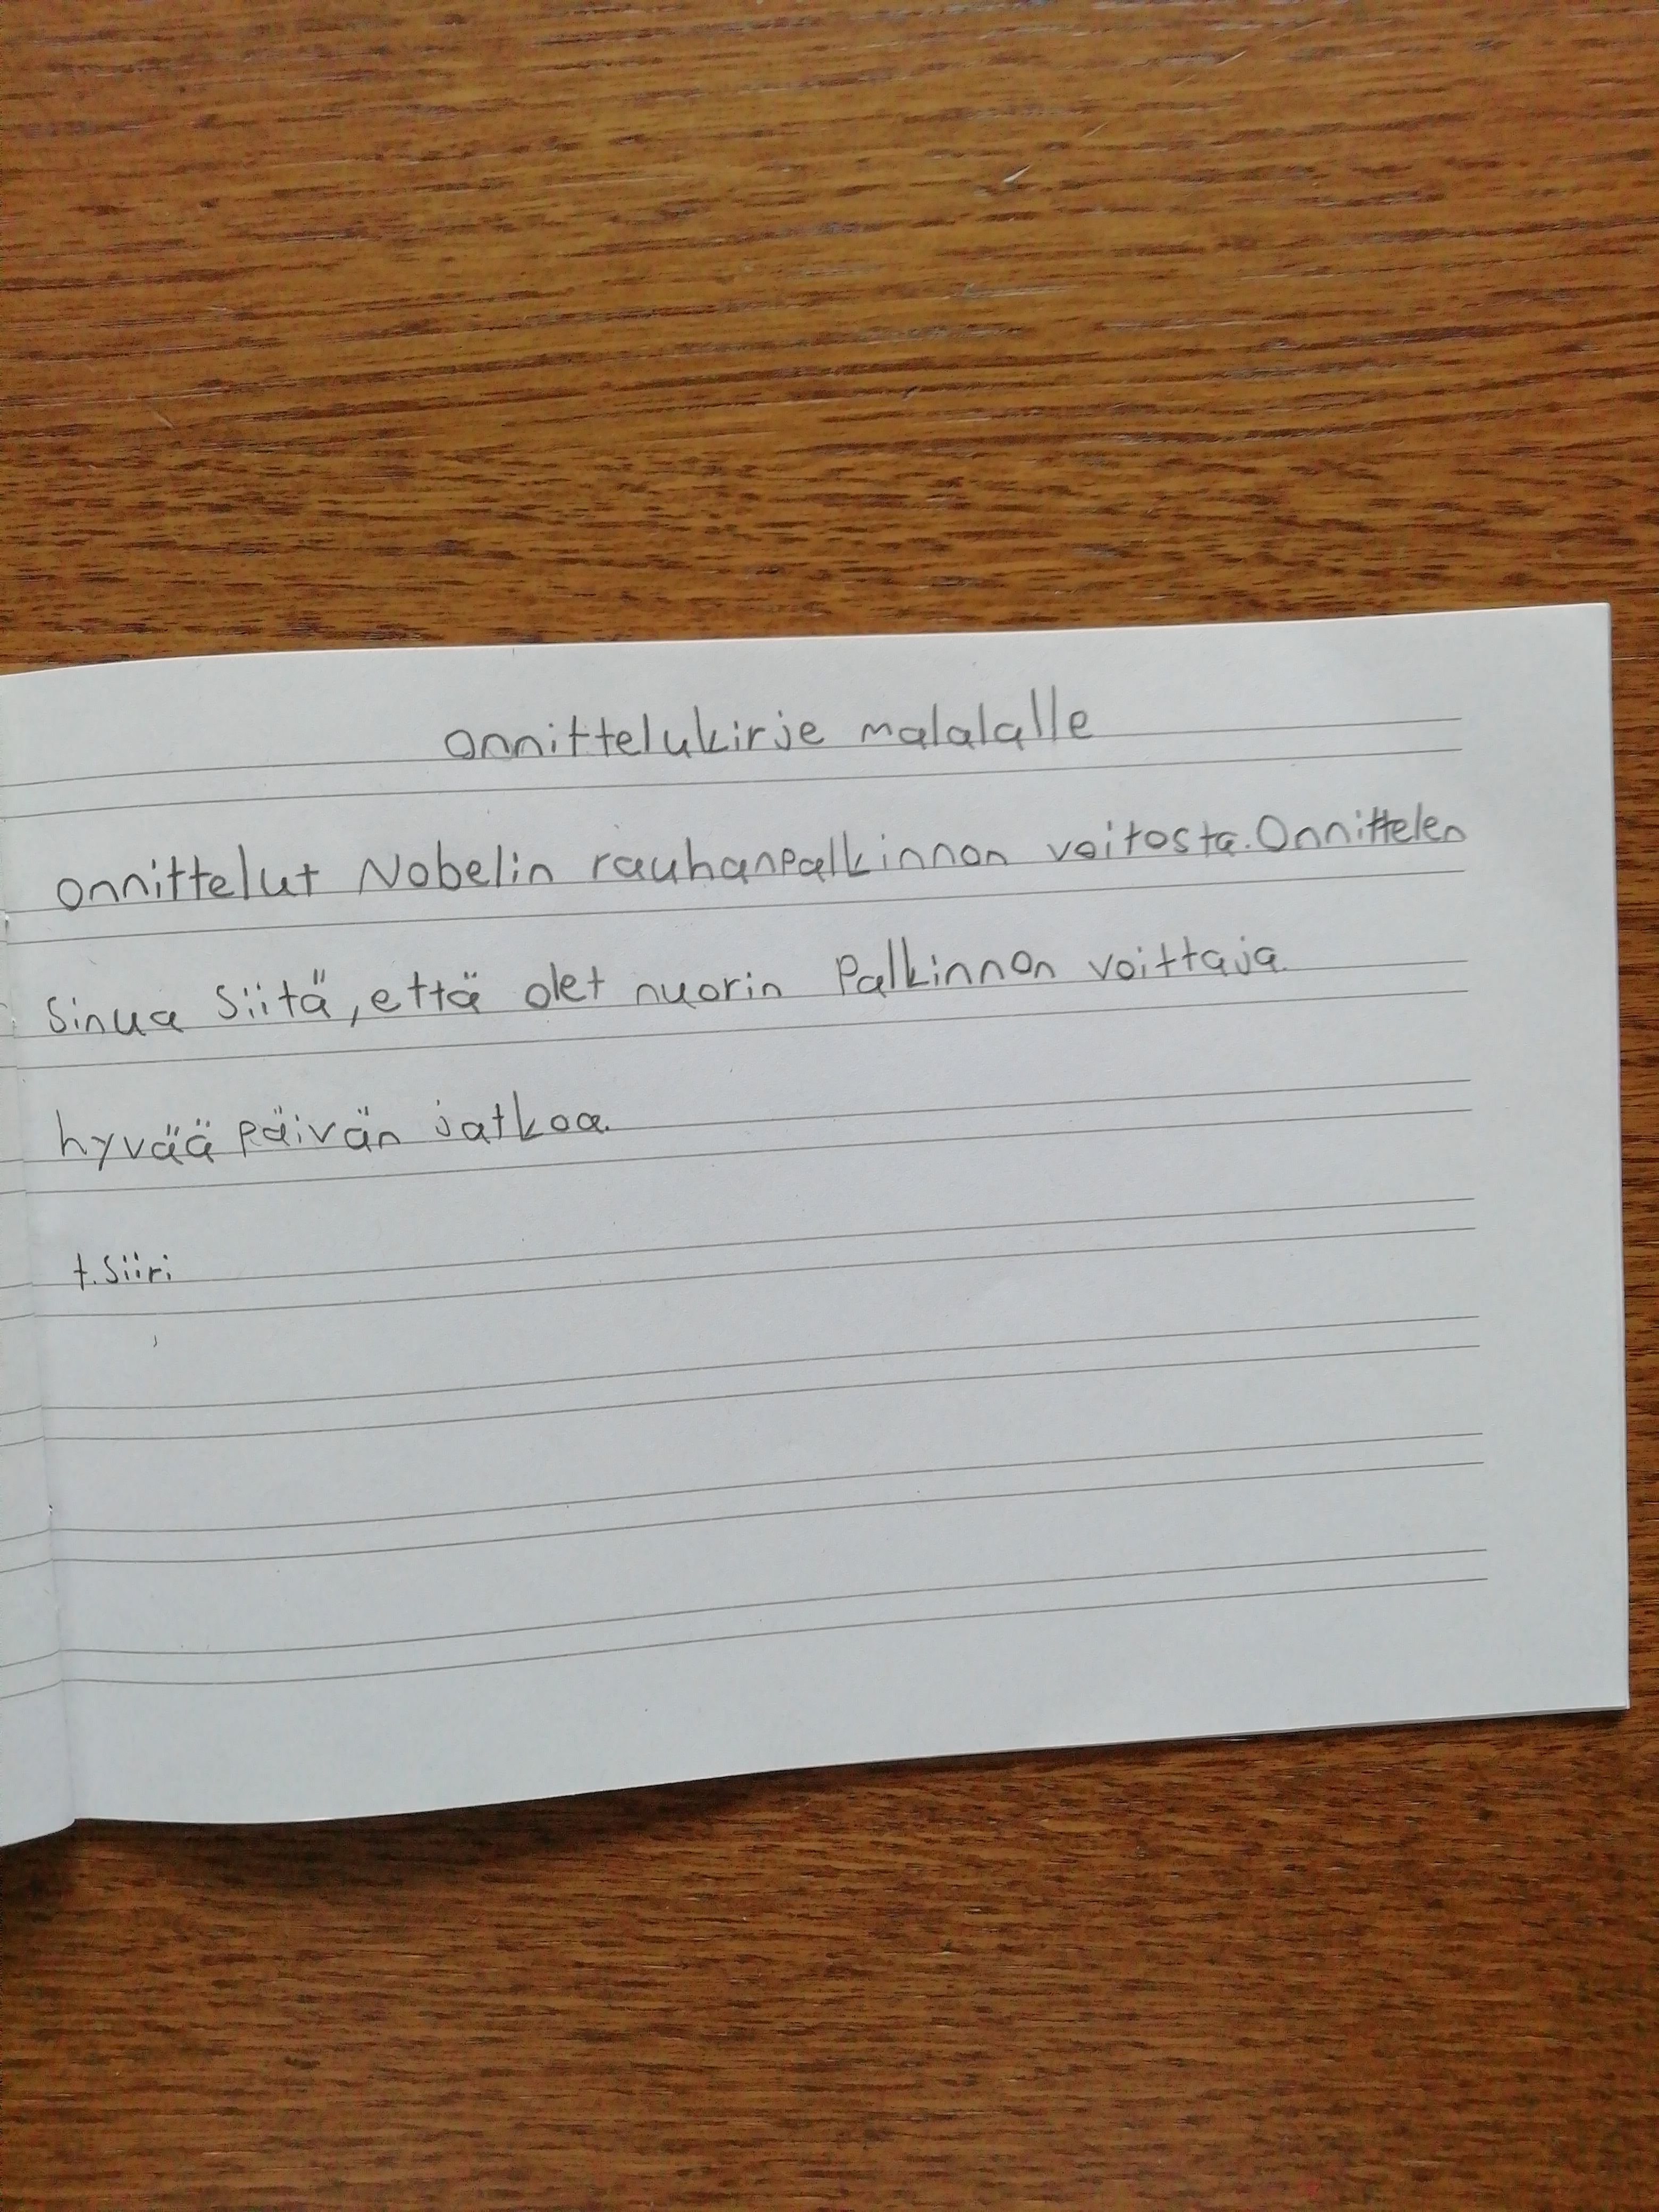 onnittelukirje malalalle
onnittelut Nobelin rauhanpalkinnon voitosta. Onnittelen
Sinua Siitä, että olet nuorin Palkinnon voittaja.
hyvää päivän jatkoa.
t. Siiri